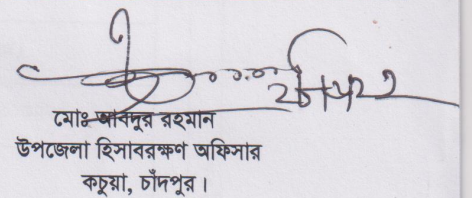 মোঃ আবদুর রহমান
উপজেলা হিসাবরক্ষণ অফিসার
কচুয়া, চাঁদপুর।